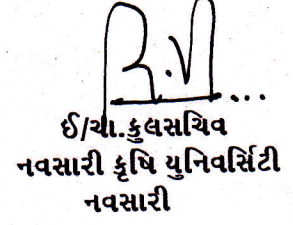 ઈ/ચા.કુલસચિવ
નવસારી કૃષિ યુનિવર્સિટી
નવસારી